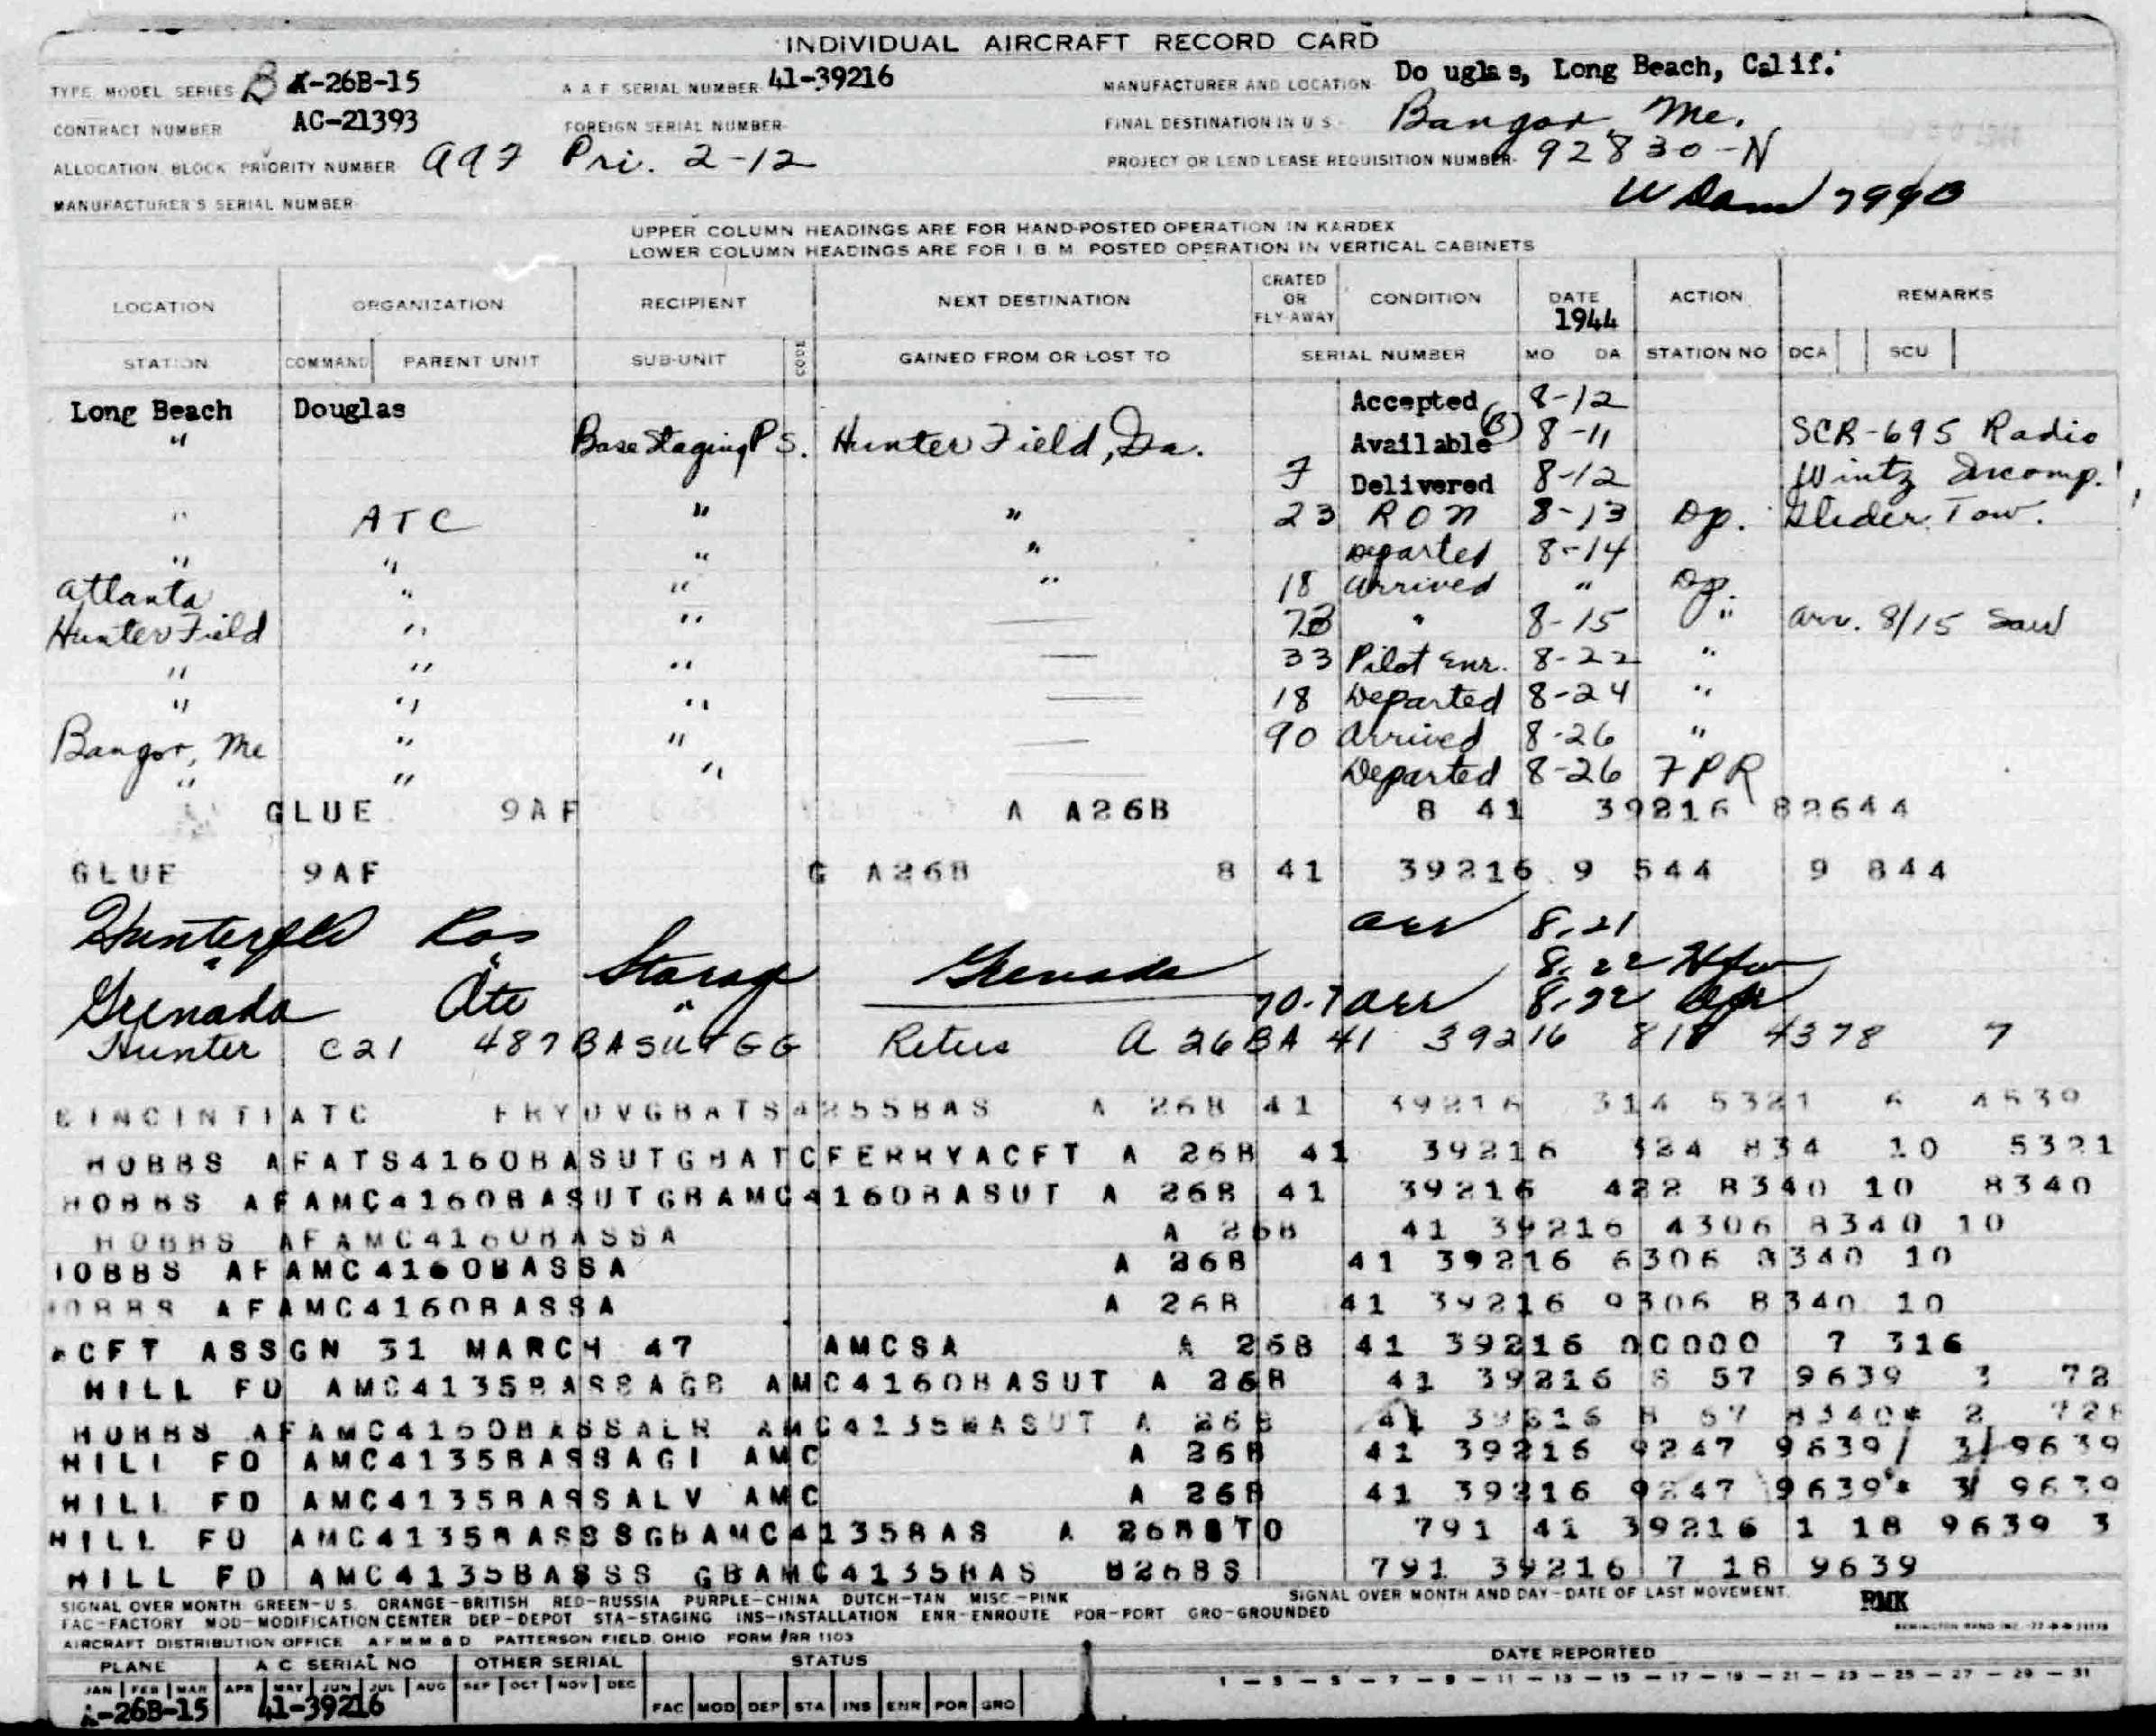 INDIVIDUAL AIRCRAFT RECORD CARD
TYPE MODEL SERIES B A-26B-15 A A F SERIAL NUMBER 41-39216 MANUFACTURER AND LOCATION Douglas, Long Beach, Calif.
CONTRACT NUMBER AC-21393 FOREIGN SERIAL NUMBER FINAL DESTINATION IN U S Bangor, Me.
ALLOCATION BLOCK PRIORITY NUMBER Pri. 2-12 PROJECT OR LEND LEASE REQUISITION NUMBER 92830-N
MANUFACTURER'S SERIAL NUMBER
UPPER COLUMN HEADINGS ARE FOR HAND-POSTED OPERATION IN KARDEX
LOWER COLUMN HEADINGS ARE FOR I. B. M. POSTED OPERATION IN VERTICAL CABINETS
LOCATION ORGANIZATION RECIPIENT NEXT DESTINATION CRATED OR FLY-AWAY CONDITION DATE 1944 ACTION REMARKS
STATION COMMAND PARENT UNIT SUB-UNIT CODE GAINED FROM OR LOST TO SERIAL NUMBER MO DA STATION NO DCA SCU
Long Beach Douglas Accepted 8-12
" Base Staging P S. Hunter Field, Ga. Available (B) 8-11 SCR-695 Radio
7 Delivered 8-12 Wintz Incomp.
" ATC " " 23 RON 8-13 Dp. Glider Tow.
" " " " Departed 8-14
Atlanta " " " 18 Arrived " Dp.
Hunter Field " " — " 8-15 " arr. 8/15 Sav
" " " — 33 Pilot Enr. 8-22 "
" " " — 18 Departed 8-24 "
Bangor, Me " " — 90 Arrived 8-26 "
" " " — Departed 8-26 7PR
GLUE 9AF A A26B 8 41 39216 82644
GLUE 9AF G A26B 8 41 39216 9 544 9 844
Hunterfld arr 8.21
Storage Grenada 8.22
Grenada Atc " arr 8.22
Hunter C21 487BASUTGG A 26BA 41 39216 4378 7
CINCINTIATC FRYDVGBATS4255BAS A 26B 41 39216 314 5321 6 4639
HOBBS AFATS4160BASUTGBATCFERRYACFT A 26B 41 39216 324 834 10 5321
HOBBS AFAMC4160BASUTGBAMC4160BASUT A 26B 41 39216 422 8340 10 8340
HOBBS AFAMC4160BASSA A 26B 41 39216 4306 8340 10
HOBBS AFAMC4160BASSA A 26B 41 39216 6306 8340 10
HOBBS AFAMC4160BASSA A 26B 41 39216 9306 8340 10
ACFT ASSGN 31 MARCH 47 AMCSA A 26B 41 39216 00000 7 316
HILL FD AMC4135BASSAGB AMC4160BASUT A 26B 41 39216 8 57 9639 3 72
HOBBS AFAMC4160BASSALR AMC4135BASUT A 26B 41 39216 8 57 8340* 2 728
HILL FD AMC4135BASSAGI AMC A 26B 41 39216 9247 9639/ 3/ 9639
HILL FD AMC4135BASSALV AMC A 26B 41 39216 9247 9639* 3/ 9639
HILL FD AMC4135BASSSGBAMC4135BAS A 26BSTO 791 41 39216 1 18 9639 3
HILL FD AMC4135BASSS GBAMC4135BAS B26BS 791 39216 7 18 9639
SIGNAL OVER MONTH GREEN-U S. ORANGE-BRITISH RED-RUSSIA PURPLE-CHINA DUTCH-TAN MISC.-PINK SIGNAL OVER MONTH AND DAY-DATE OF LAST MOVEMENT. RMK
FAC-FACTORY MOD-MODIFICATION CENTER DEP-DEPOT STA-STAGING INS-INSTALLATION ENR-ENROUTE POR-PORT GRO-GROUNDED
AIRCRAFT DISTRIBUTION OFFICE A F M M B D PATTERSON FIELD, OHIO FORM #RR 1103
PLANE A C SERIAL NO OTHER SERIAL STATUS DATE REPORTED
JAN FEB MAR APR MAY JUN JUL AUG SEP OCT NOV DEC 1 - 3 - 5 - 7 - 9 - 11 - 13 - 15 - 17 - 19 - 21 - 23 - 25 - 27 - 29 - 31
A-26B-15 41-39216 FAC MOD DEP STA INS ENR POR GRO